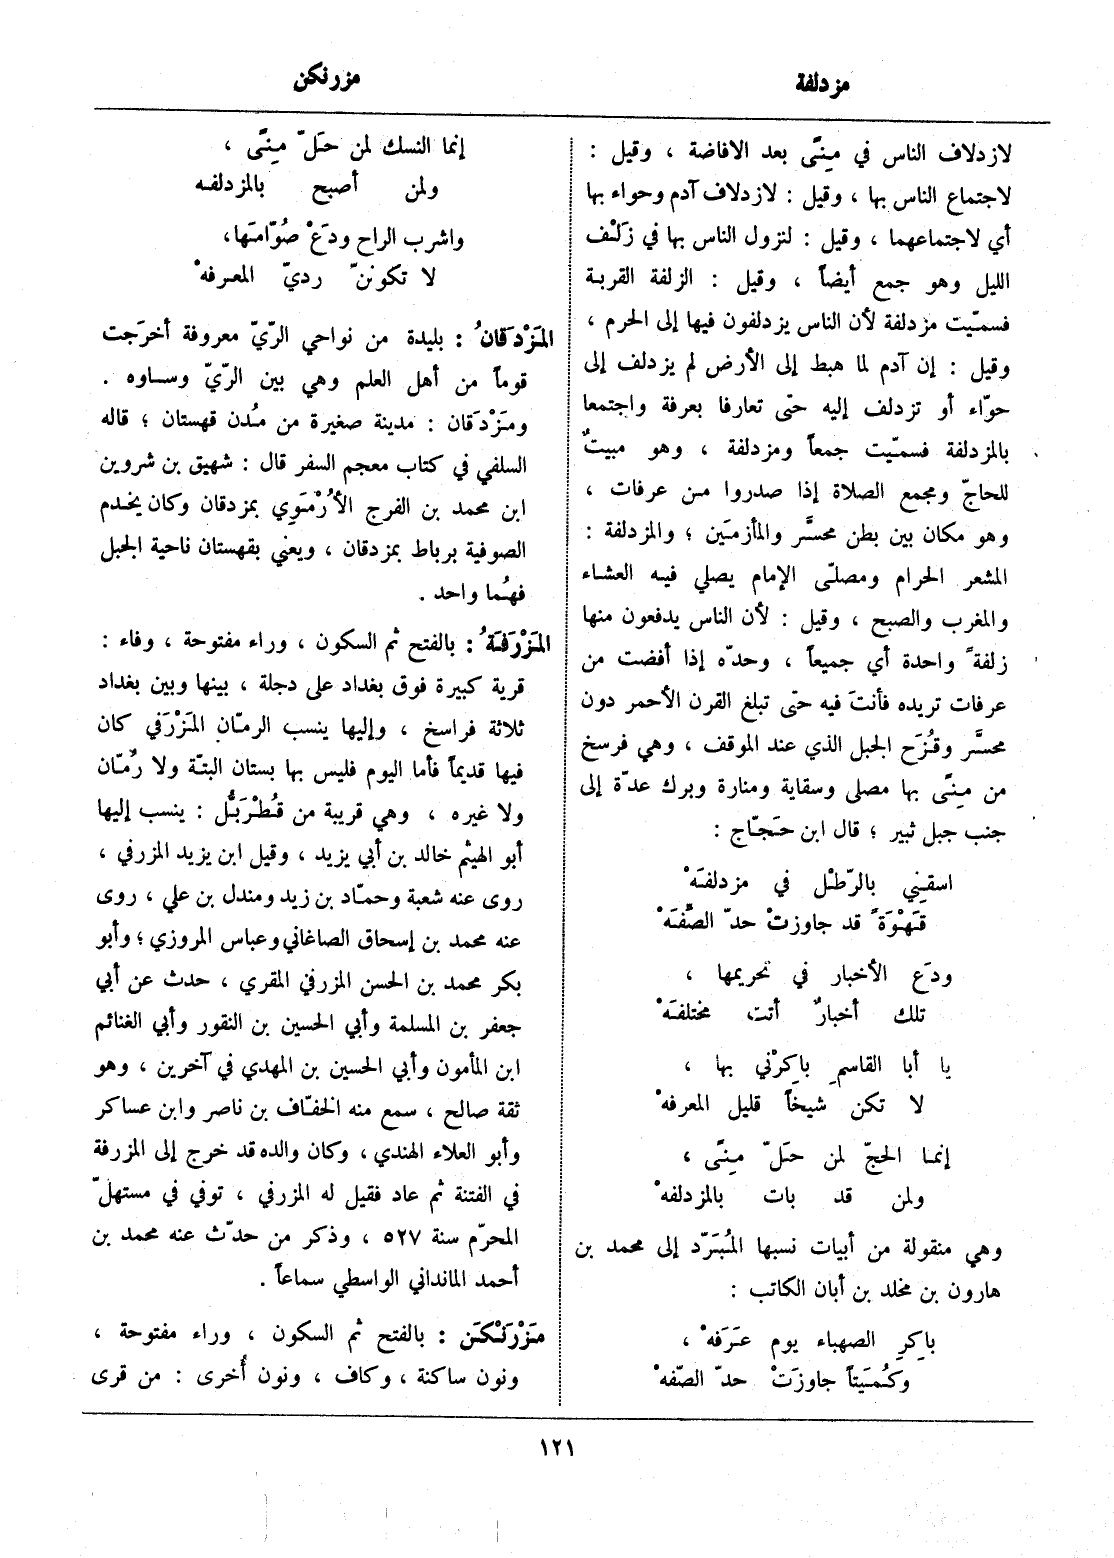 مزدلفة
مزرنكن
لازدلاف الناس في مِنًّى بعد الافاضة ، وقيل :
لاجتماع الناس بها ، وقيل : لازدلاف آدم وحواء بها
أي لاجتماعهما ، وقيل : لنزول الناس بها في زَلَف
الليل وهو جمع أيضاً ، وقيل : الزلفة القربة
فسمّيت مزدلفة لأن الناس يزدلفون فيها إلى الحرم ،
وقيل : إن آدم لما هبط إلى الأرض لم يزدلف إلى
حوّاء أو تزدلف إليه حتى تعارفا بعرفة واجتمعا
بالمزدلفة فسمّيت جمعاً ومزدلفة ، وهو مبيتٌ
للحاجّ ومجمع الصلاة إذا صدروا من عرفات ،
وهو مكان بين بطن محسَّر والمأزمَين ؛ والمزدلفة :
المشعر الحرام ومصلّى الإمام يصلي فيه العشاء
والمغرب والصبح ، وقيل : لأن الناس يدفعون منها
زلفةً واحدة أي جميعاً ، وحدّه إذا أفضت من
عرفات تريده فأنتَ فيه حتى تبلغ القرن الأحمر دون
محسَّر وقُزَح الجبل الذي عند الموقف ، وهي فرسخ
من مِنًّى بها مصلى وسقاية ومنارة وبرك عدّة إلى
جنب جبل ثبير ؛ قال ابن حَجّاج :
اسقِني بالرّطل في مزدلفَهْ
قَهْوَةً قد جاوزتْ حدّ الصِّفَهْ
ودَع الأخبار في تحريمها ،
تلك أخبارٌ أتت مختلفَهْ
يا أبا القاسمِ باكِرْني بها ،
لا تكن شيخاً قليل المعرفهْ
إنما الحجّ لمن حَلّ مِنًّى ،
ولمن قد بات بالمزدلفهْ
وهي منقولة من أبيات نسبها المُبَرّد إلى محمد بن
هارون بن مخلد بن أبان الكاتب :
باكِرِ الصهباء يوم عَرَفهْ ،
وكُمَيتاً جاوزَتْ حدّ الصّفهْ
إنما النسك لمن حَلّ مِنًّى ،
ولمن أصبح بالمزدلفه
واشرب الراح ودَعْ صُوّامَها،
لا تكوننّ رديّ المعرفهْ
المَزْدَقانُ : بليدة من نواحي الرّيّ معروفة أخرَجت
قوماً من أهل العلم وهي بين الرّيّ وساوه .
ومَزْدَقان : مدينة صغيرة من مُدن قهستان ؛ قاله
السلفي في كتاب معجم السفر قال : شهيق بن شروين
ابن محمد بن الفرج الأُرْمَوِي بمزدقان وكان يخدم
الصوفية برباط بمزدقان ، ويعني بقهستان ناحية الجبل
فهُما واحد .
المَزْرَفَةُ : بالفتح ثم السكون ، وراء مفتوحة ، وفاء :
قرية كبيرة فوق بغداد على دجلة ، بينها وبين بغداد
ثلاثة فراسخ ، وإليها ينسب الرمّان المَزْرَفي كان
فيها قديماً فأما اليوم فليس بها بستان البتّة ولا رُمّان
ولا غيره ، وهي قريبة من قُطْرَبُّل : ينسب إليها
أبو الهيثم خالد بن أبي يزيد ، وقيل ابن يزيد المزرفي ،
روى عنه شعبة وحمّاد بن زيد ومندل بن علي ، روى
عنه محمد بن إسحاق الصاغاني وعباس المروزي ؛ وأبو
بكر محمد بن الحسن المزرفي المقري ، حدث عن أبي
جعفر بن المسلمة وأبي الحسين بن النقور وأبي الغنائم
ابن المأمون وأبي الحسين بن المهدي في آخرين ، وهو
ثقة صالح ، سمع منه الخفّاف بن ناصر وابن عساكر
وأبو العلاء الهندي ، وكان والده قد خرج إلى المزرفة
في الفتنة ثم عاد فقيل له المزرفي ، توفي في مستهلّ
المحرّم سنة ٥٢٧ ، وذكر من حدّث عنه محمد بن
أحمد المانداني الواسطي سماعاً .
مَزْرَنْكَن : بالفتح ثم السكون ، وراء مفتوحة ،
ونون ساكنة ، وكاف ، ونون أُخرى : من قرى
١٢١